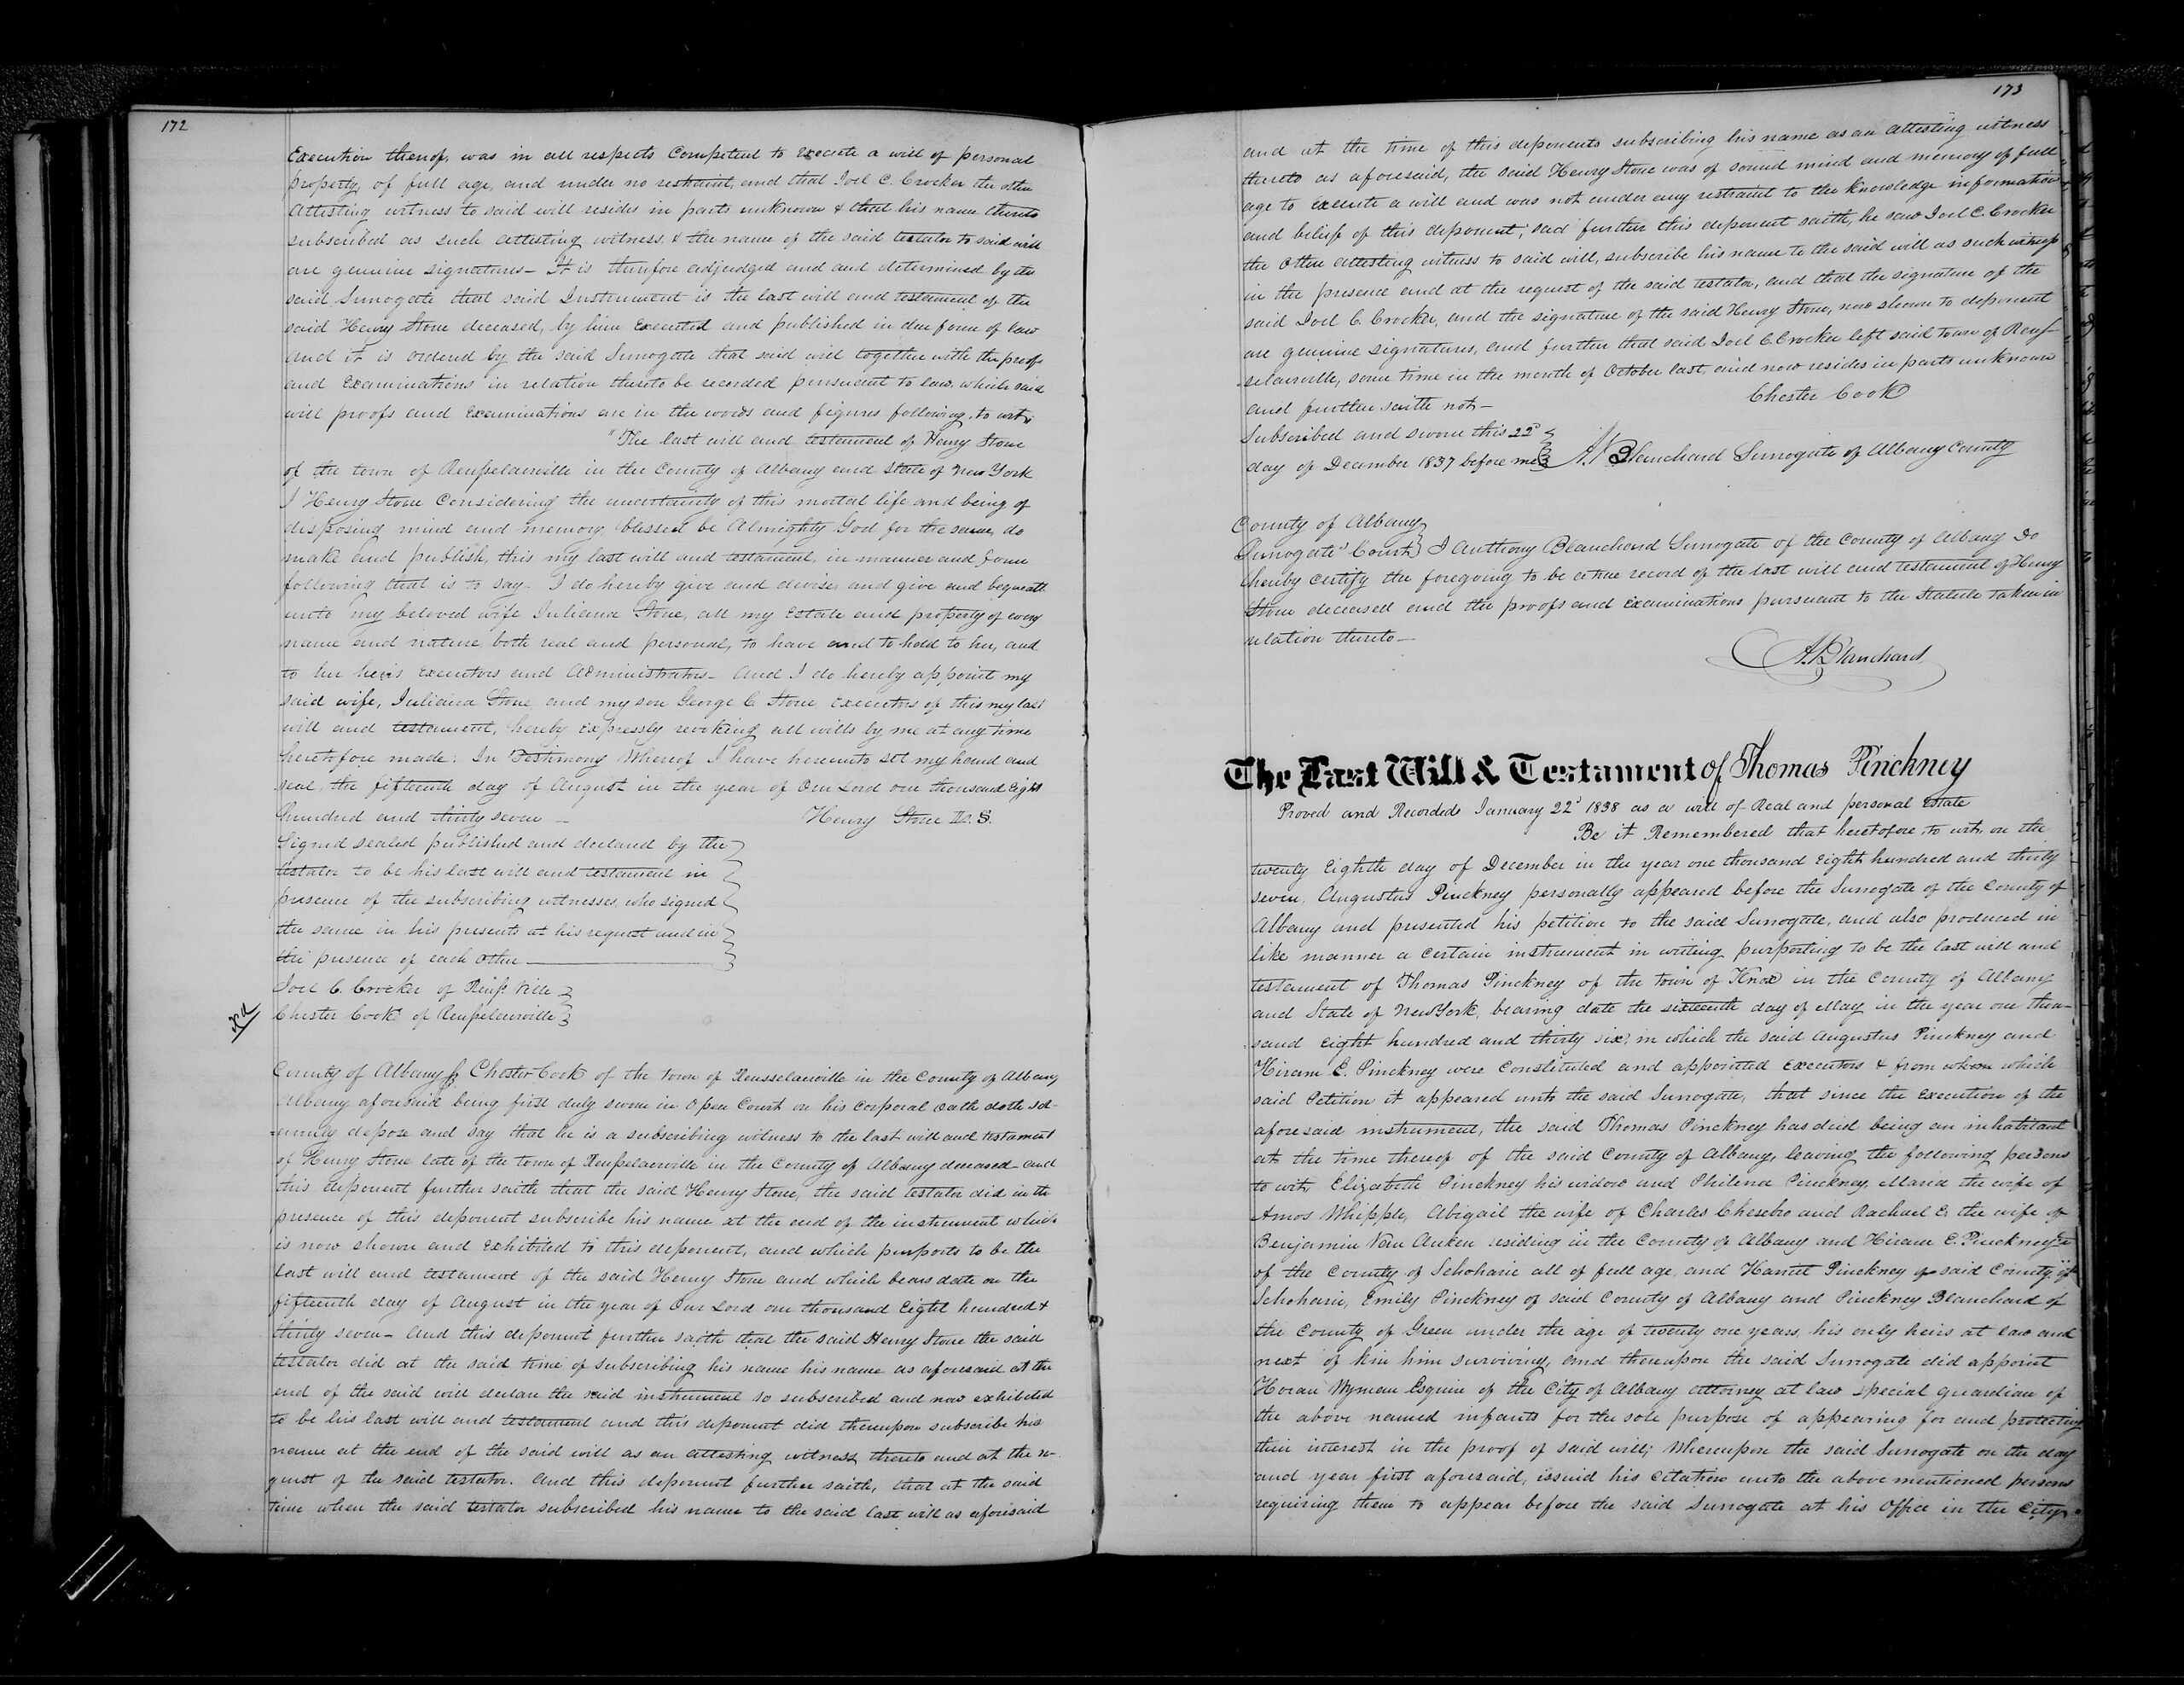 172
Execution thereof, was in all respects Competent to execute a will of personal
property, of full age, and under no restraint, and that Joel C. Crocker the other
attesting witness to said will resides in parts unknown & that his name thereto
subscribed as such attesting witness, & the name of the said testator to said will
are genuine signatures— It is therefore adjudged and and determined by the
said Surrogate that said Instrument is the last will and testament of the
said Henry Stone deceased, by him Executed and published in due form of law
and it is ordered by the said Surrogate that said will together with the proofs
and Examinations in relation thereto be recorded pursuant to law, which said
will proofs and Examinations are in the words and figures following, to wit,
"The last will and testament of Henry Stone
of the town of Rensselaerville in the County of Albany and State of New York
I Henry Stone Considering the uncertainty of this mortal life and being of
disposing mind and memory, blessed be Almighty God for the same, do
make and publish, this my last will and testament, in manner and form
following that is to say— I do hereby give and devise, and give and bequeath
unto my beloved wife Juliana Stone, all my Estate and property of every
name and nature both real and personal, to have and to hold to her, and
to her heirs Executors and Administrators— And I do hereby appoint my
said wife, Juliana Stone and my son George C Stone Executors of this my last
will and testament, hereby Expressly revoking all wills by me at any time
heretofore made: In Testimony Whereof I have hereunto set my hand and
seal, the fifteenth day of August in the year of Our Lord one thousand Eight
hundred and thirty seven — Henry Stone L. S.
Signed sealed published and declared by the
testator to be his last will and testament in
presence of the subscribing witnesses, who signed
the same in his presents at his request and in
the presence of each other
Joel C. Crocker of Renss Ville
Chester Cook of Rensselaerville
County of Albany ss Chester Cook of the town of Rensselaerville in the County of Albany
Albany aforesaid being first duly sworn in Open Court on his Corporal oath doth sol-
=emnly depose and say that he is a subscribing witness to the last will and testament
of Henry Stone late of the town of Rensselaerville in the County of Albany deceased— and
this deponent further saith that the said Henry Stone, the said testator did in the
presence of this deponent subscribe his name at the end of the instrument which
is now shown and Exhibited to this deponent, and which purports to be the
last will and testament of the said Henry Stone and which bears date on the
fifteenth day of August in the year of Our Lord one thousand Eight hundred &
thirty seven— And this deponent further saith that the said Henry Stone the said
testator did at the said time of subscribing his name his name as aforesaid at the
end of the said will declare the said instrument so subscribed and now exhibited
to be his last will and testament and this deponent did thereupon subscribe his
name at the end of the said will as an attesting witness thereto and at the re-
quest of the said testator. And this deponent further saith, that at the said
time when the said testator subscribed his name to the said last will as aforesaid
173
and at the time of this deponents subscribing his name as an attesting witness
thereto as aforesaid, the said Henry Stone was of sound mind and memory of full
age to Execute a will and was not under any restraint to the knowledge information
and belief of this deponent; and further this deponent saith, he saw Joel C. Crocker
the other attesting witness to said will, subscribe his name to the said will as such witness
in the presence and at the request of the said testator, and that the signature of the
said Joel C. Crocker, and the signature of the said Henry Stone, now shown to deponent
are genuine signatures, and further that said Joel C. Crocker left said town of Rens-
selaerville, some time in the month of October last, and now resides in parts unknown
and further saith not— Chester Cook
Subscribed and sworn this 22d
day of December 1837 before me A. Blanchard Surrogate of Albany County
County of Albany
Surrogate's Court I Anthony Blanchard Surrogate of the County of Albany Do
hereby certify the foregoing to be a true record of the last will and testament of Henry
Stone deceased and the proofs and Examinations pursuant to the Statute taken in
relation thereto—
A. Blanchard
The Last Will & Testament of Thomas Pinckney
Proved and Recorded January 22d 1838 as a will of Real and personal Estate
Be it Remembered that heretofore, to wit, on the
twenty Eighth day of December in the year one thousand Eight hundred and thirty
seven, Augustus Pinckney personally appeared before the Surrogate of the County of
Albany and presented his petition to the said Surrogate, and also produced in
like manner a Certain instrument in writing purporting to be the last will and
testament of Thomas Pinckney of the town of Knox in the County of Albany
and State of New York, bearing date the sixteenth day of May in the year one thou-
sand Eight hundred and thirty six, in which the said Augustus Pinckney and
Hiram E. Pinckney were Constituted and appointed Executors & from whom which
said Petition it appeared unto the said Surrogate, that since the Execution of the
aforesaid instrument, the said Thomas Pinckney has died being an inhabitant
at the time thereof of the said County of Albany, leaving the following persons
to wit, Elizabeth Pinckney his widow and Philena Pinckney, Maria the wife of
Amos Whipple, Abigail the wife of Charles Chesebro and Rachael E. the wife of
Benjamin Van Auken residing in the County of Albany and Hiram E. Pinckney
of the County of Schoharie all of full age, and Harriet Pinckney of said County of
Schoharie, Emily Pinckney of said County of Albany and Pinckney Blanchard of
the County of Green under the age of twenty one years, his only heirs at law and
next of kin him surviving, and thereupon the said Surrogate did appoint
Horace Wyman Esquire of the City of Albany attorney at law special guardian of
the above named infants for the sole purpose of appearing for and protecting
their interest in the proof of said will; Whereupon the said Surrogate on the day
and year first aforesaid, issued his Citation unto the above mentioned persons
requiring them to appear before the said Surrogate at his Office in the City